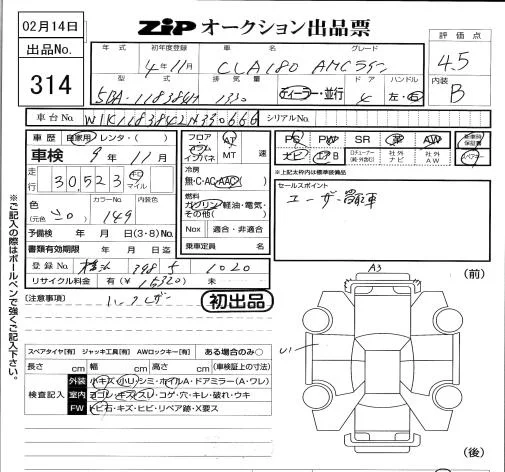 02月14日
ZiP オークション出品票
出品No.
314
年式 初年度登録 車名 グレード
4年11月 CLA180 AMGライン
型式 排気量 ドア ハンドル
1330 ディーラー・並行 4 左・右
評価点
4.5
内装
B
車台No. W1K1183842N330666 シリアルNo.
車歴 自家用・レンタ・( )
車検 9年11月
走行 30,523 キロ マイル
色 (元色) シロ カラーNo. 149 内装色
予備検 年 月 日(3・8)No.
書類有効期限 年 月 日迄
登録No. 398 1020
リサイクル料金 有(¥16320) 未
フロア コラム インパネ AT MT 速
冷房
無・C・AC・AAC
燃料
ガソリン・軽油・電気・その他( )
Nox 適合・非適合
乗車定員 名
PS PW SR 革 AW 新車時保証書
ナビ エアB ロデューナー(純・外含む) 社外ナビ 社外AW スペアキー
※上記太枠内は標準装備品
セールスポイント
ユーザー買取車
[注意事項] 初出品
スペアタイヤ[有] ジャッキ工具[有] AWロックキー[有] ある場合のみ○
長さ cm 幅 cm 高さ cm (車検証上の寸法)
検査記入
外装 小キズ・小U・シミ・ホイルA・ドアミラー(A・ワレ)
室内 ヨゴレ・キズ・スレ・コゲ・穴・キレ・破れ・ウキ
FW トビ石・キズ・ヒビ・リペア跡・X要ス
※ご記入の際はボールペンで強くご記入下さい。
A3
(前)
U1
(後)